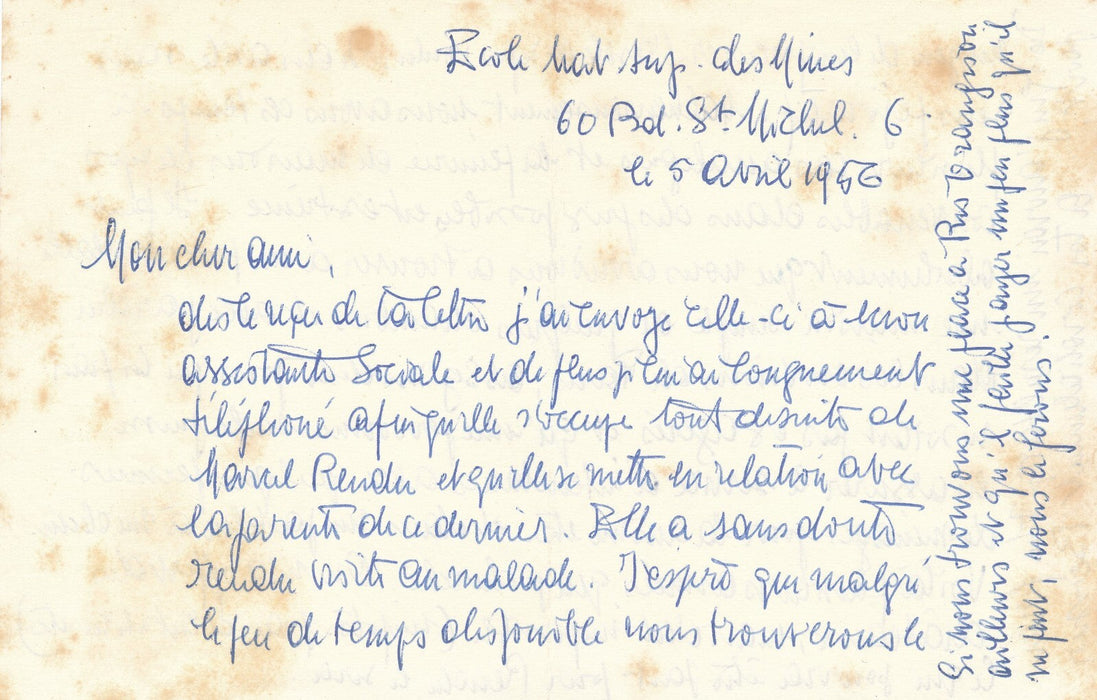 Ecole nat sup. des Mines
60 Bd. St Michel. 6.
le 5 Avril 1956
Mon cher ami,
dès le reçu de ta lettre j'ai envoyé celle-ci à mon
assistante Sociale et de plus je lui ai longuement
téléphoné afin qu'elle s'occupe tout de suite de
Marcel Rendu et qu'elle se mette en relation avec
la parente de ce dernier. Elle a sans doute
rendu visite au malade. J'espère que malgré
le peu de temps disponible nous trouverons le
Si nous trouvons une place à
ailleurs et qu'il faille payer un peu plus qu'il
ne peut, nous le ferons.